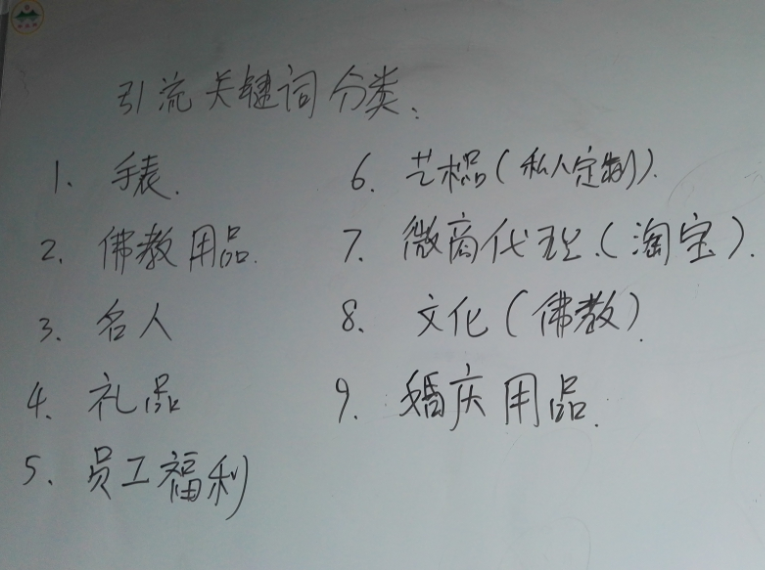 引流关键词分类:
1. 手表.
2. 佛教用品.
3. 名人
4. 礼品
5. 员工福利
6. 艺术品(私人定制).
7. 微商代理.(淘宝).
8. 文化(佛教).
9. 婚庆用品.